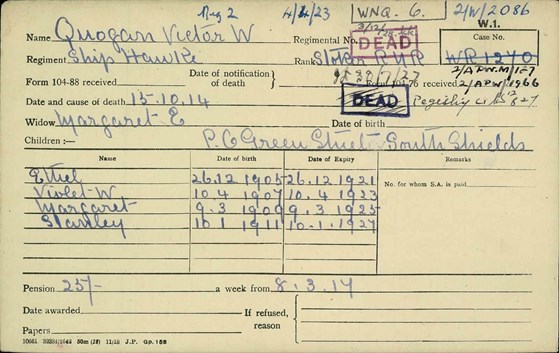 Reg 2 4/4/23 WNQ. 6. 2/W/2086
W.1.
Name Quogan Victor W Regimental No. DEAD Case No.
Regiment Ship Hawke Rank Stoker R F R WR 1270
2/APW.M/127
Form 104-88 received Date of notification of death 28/7/27 Form 104-76 received 2/APW/1966
Date and cause of death 15.10.14 DEAD
Widow Margaret E Date of birth
Children :— P.C Green Street South Shields
Name Date of birth Date of Expiry Remarks
Ethel 26.12 1905 26.12 1921 No. for whom S.A. is paid
Violet W 10.4 1907 10.4 1923
Margaret 9.3 1909 9.3 1925
Stanley 10.1 1911 10.1.1927
Pension 25/- a week from 8.3.17
Date awarded If refused, reason
Papers
50m (12) 11/18 J.P. Gp. 158